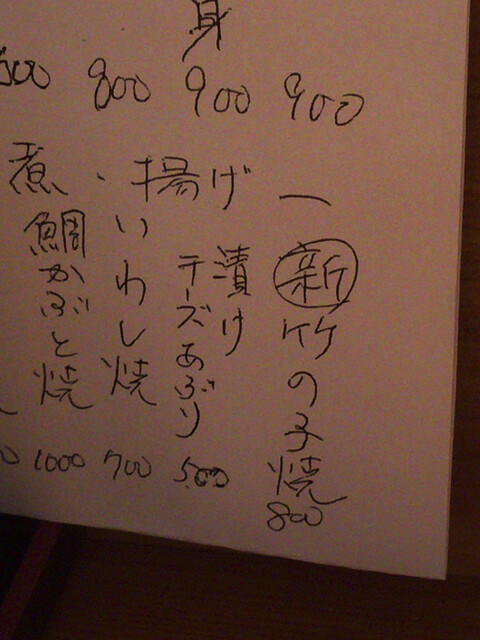 身
900
900
800
500
一
揚げ
煮
㊟新竹の子焼
800
漬け
チーズあぶり
500
いわし焼
700
鯛かぶと焼
1000